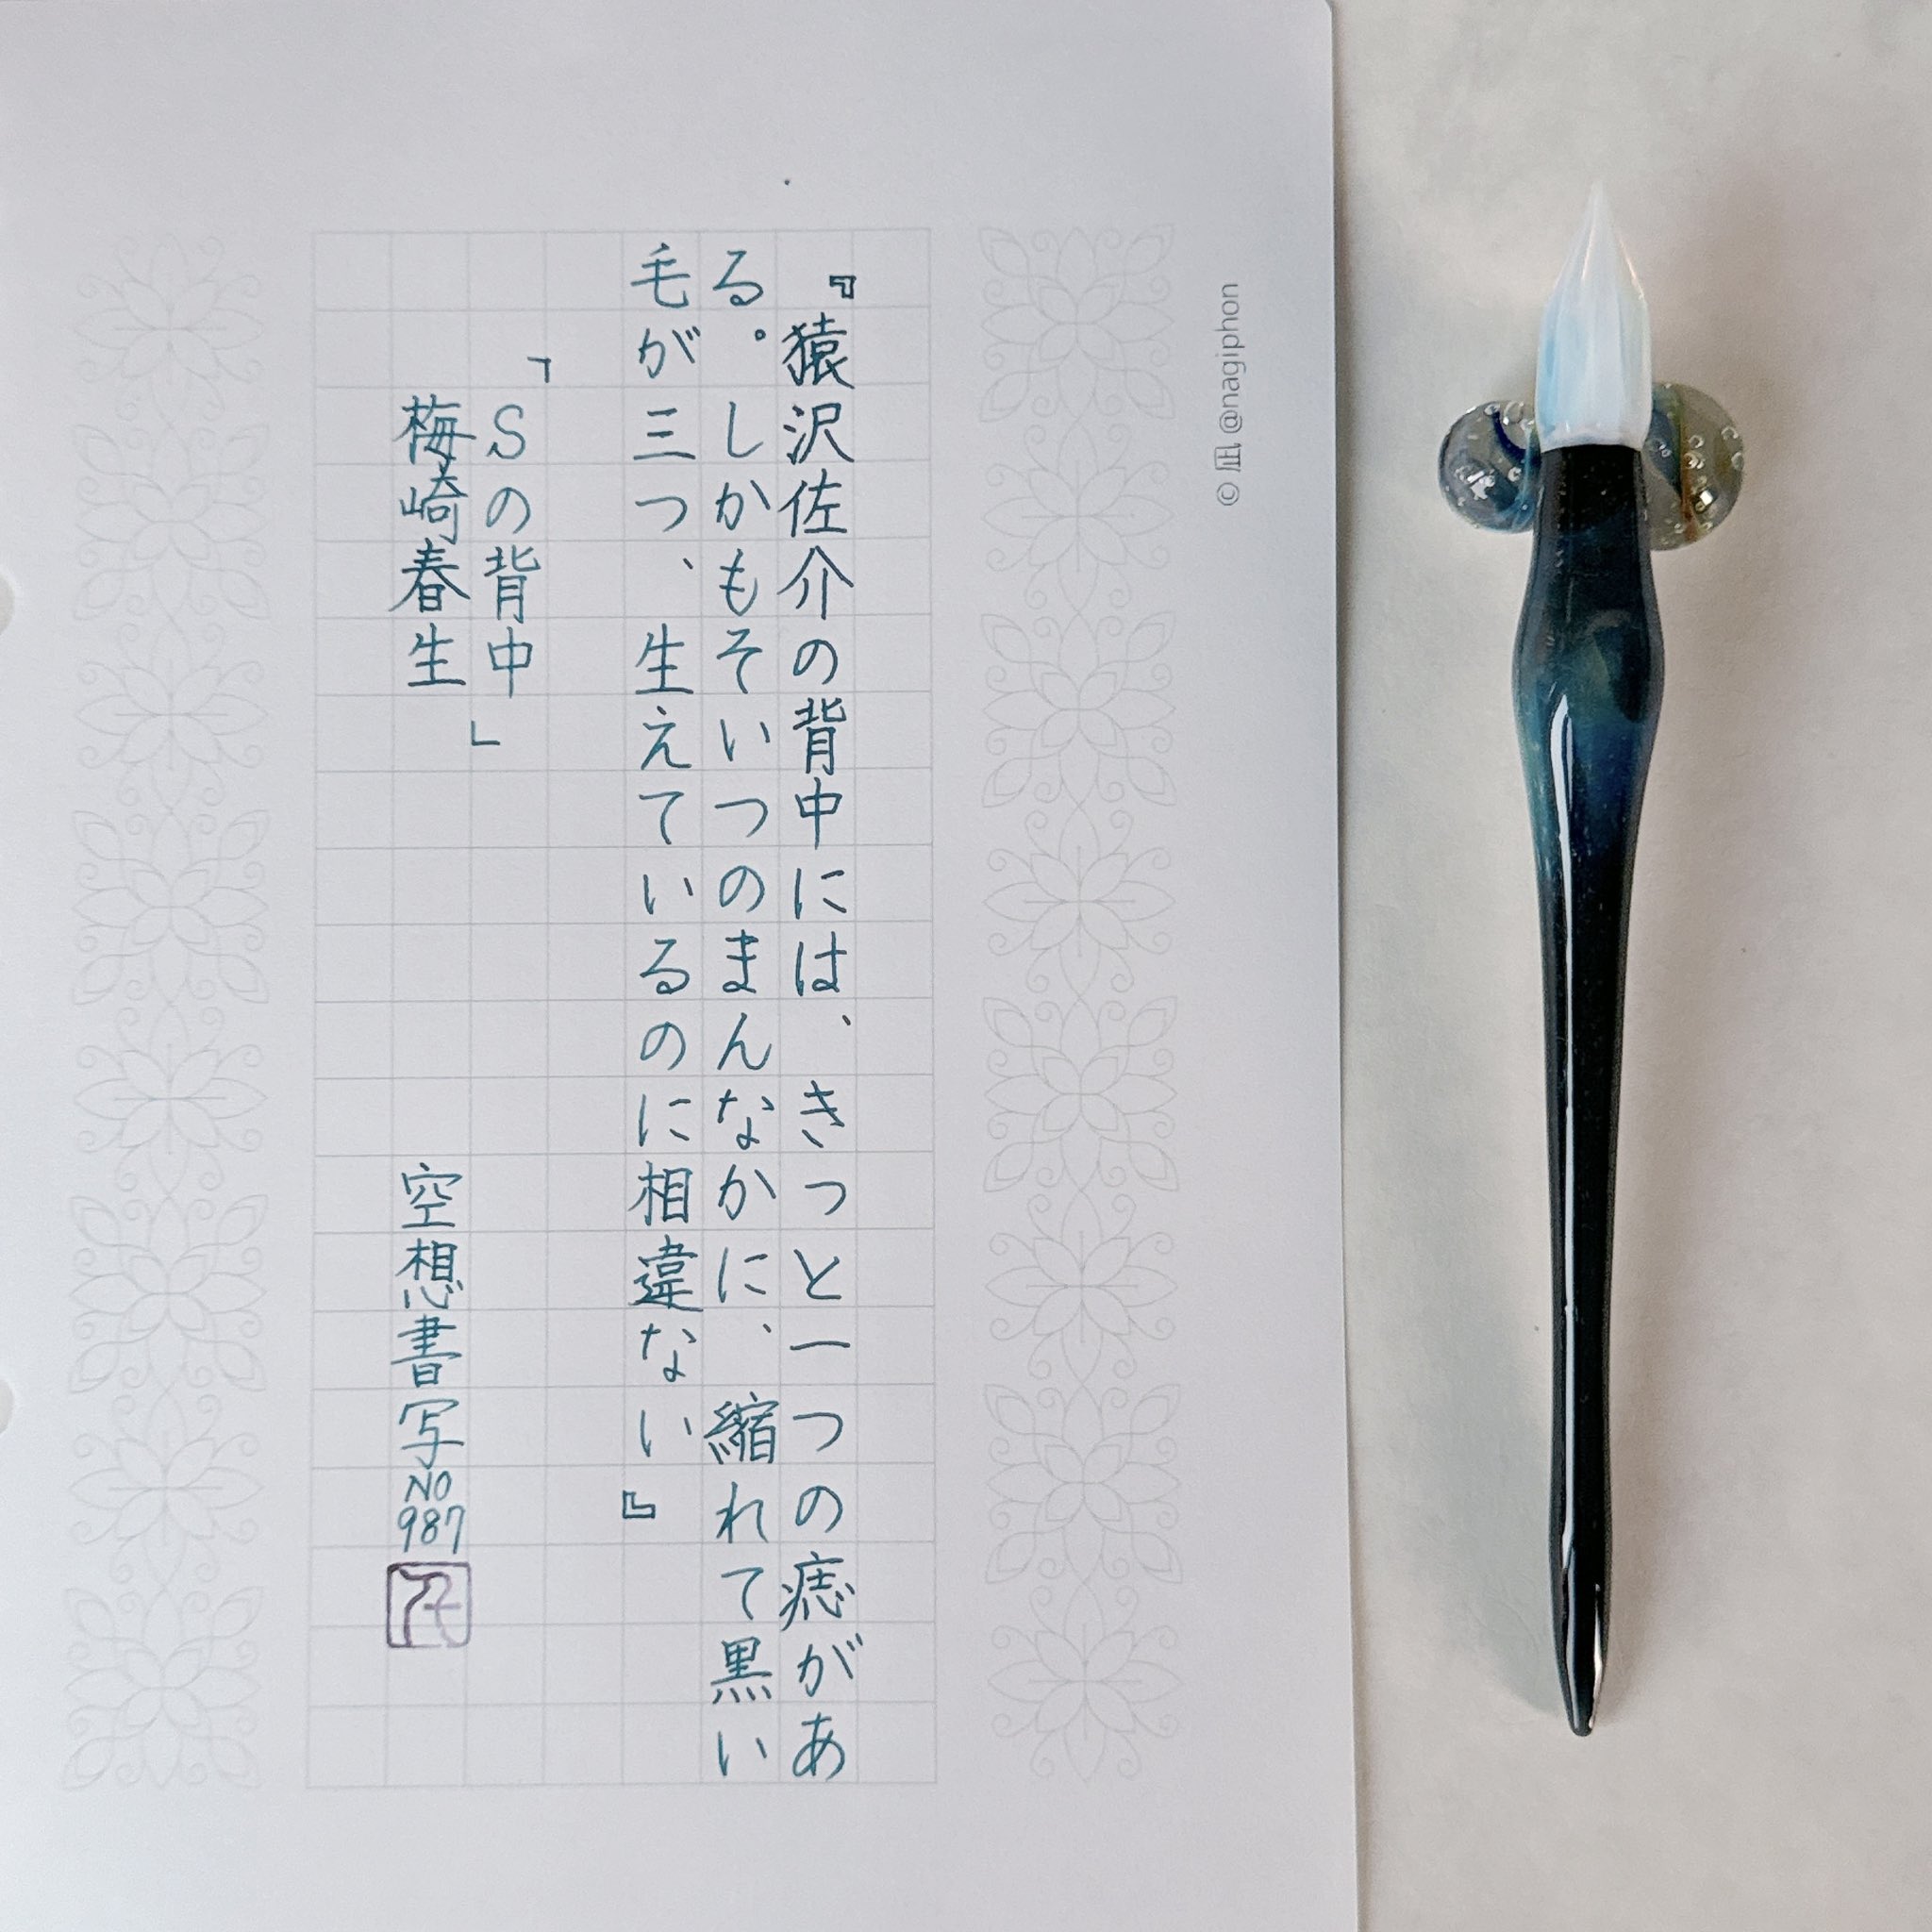 『猿沢佐介の背中には、きっと一つの痣があ
る。しかもそいつのまんなかに、縮れて黒い
毛が三つ、生えているのに相違ない』
「Sの背中」
梅崎春生 空想書写NO987
© 凪 @nagiphon